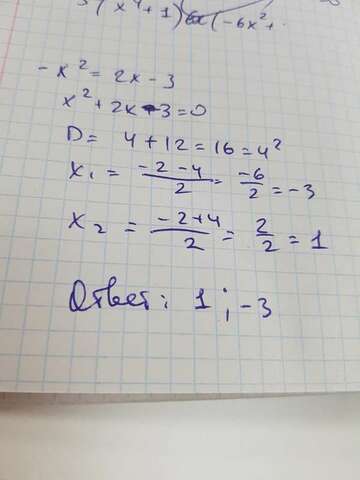 (x⁴+1) (-6x²+
-x² = 2x - 3
x² + 2x - 3 = 0
D = 4 + 12 = 16 = 4²
x₁ = (-2-4)/2 = -6/2 = -3
x₂ = (-2+4)/2 = 2/2 = 1
Ответ: 1 ; -3